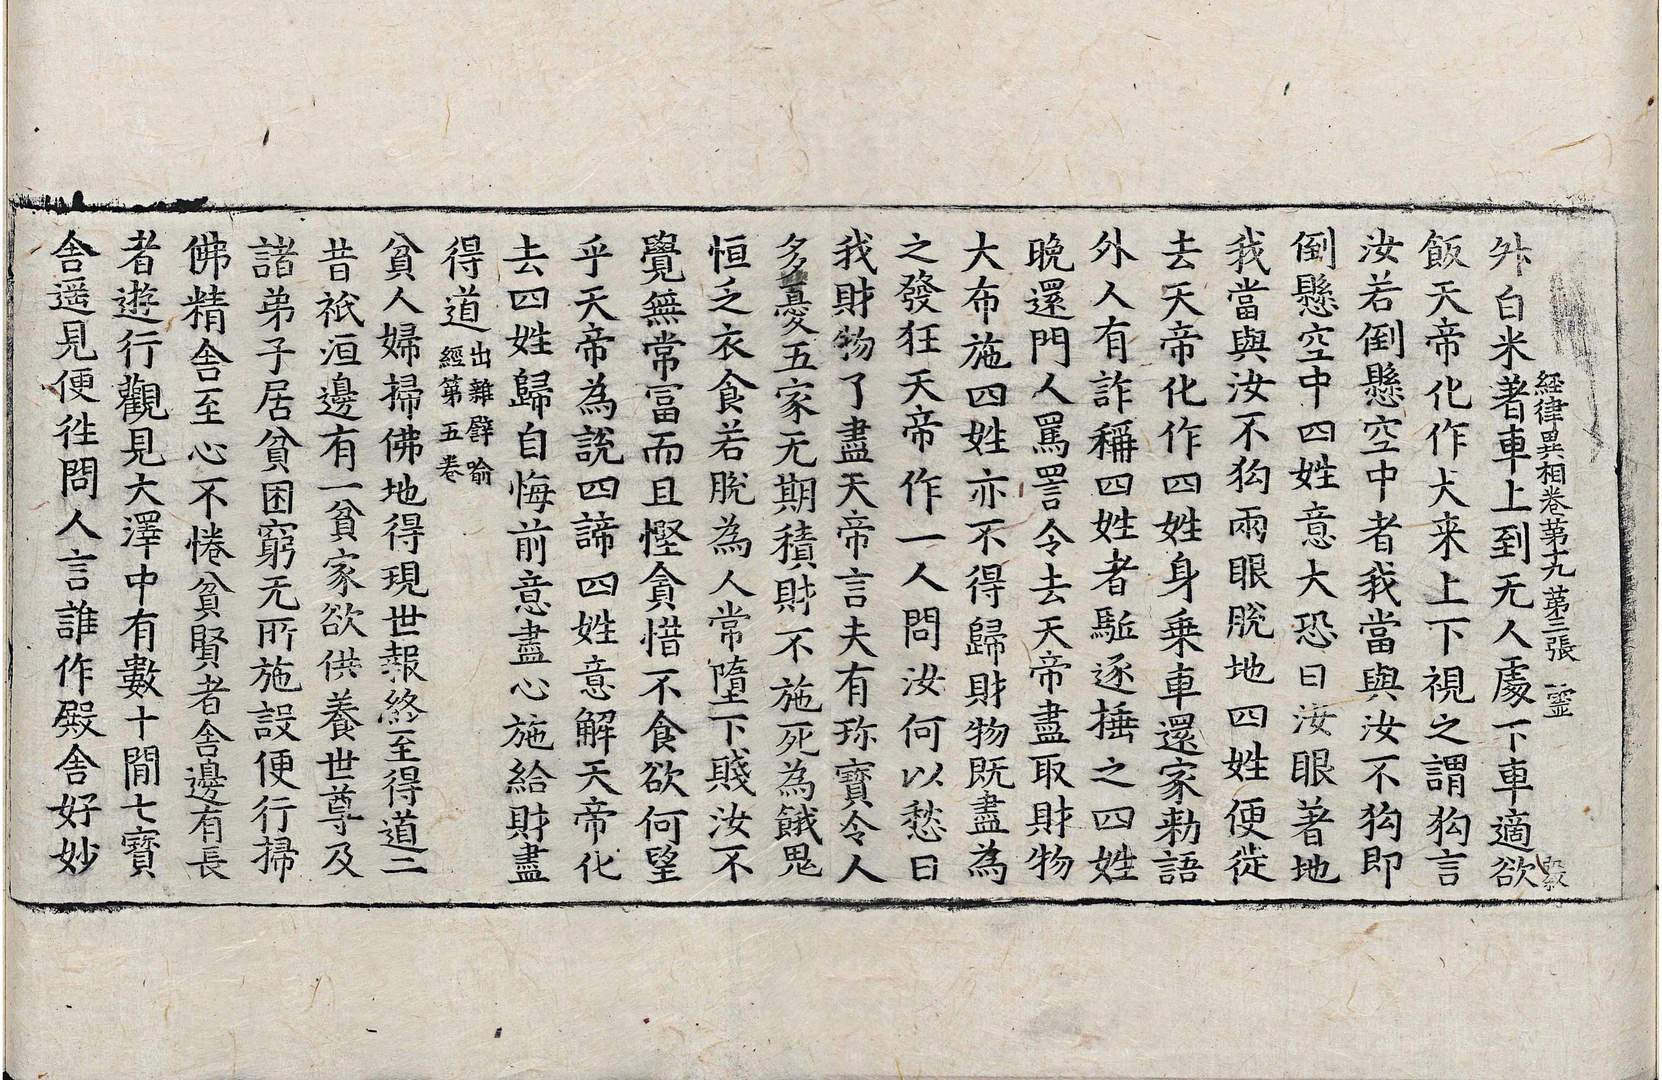 経律異相卷第十九 第三張 靈
外白米著車上到无人處下車適欲
飯天帝化作犬来上下視之謂狗言
汝若倒懸空中者我當與汝不狗即
倒懸空中四姓意大恐曰汝眼著地
我當與汝不狗兩眼脫地四姓便徙
去天帝化作四姓身乗車還家勑語
外人有詐稱四姓者駈逐捶之四姓
晚還門人罵詈令去天帝盡取財物
大布施四姓亦不得歸財物既盡為
之發狂天帝作一人問汝何以愁曰
我財物了盡天帝言夫有珎寶令人
多憂五家无期積財不施死為餓鬼
恒乏衣食若脫為人常墮下賤汝不
覺無常冨而且慳貪惜不食欲何望
乎天帝為說四諦四姓意解天帝化
去四姓歸自悔前意盡心施給財盡
得道出雜譬喻經第五卷
貧人婦掃佛地得現世報終至得道二
昔祇洹邊有一貧家欲供養世尊及
諸弟子居貧困窮无所施設便行掃
佛精舍至心不惓貧賢者舍邊有長
者遊行觀見大澤中有數十間七寶
舍遥見便徃問人言誰作殿舍好妙